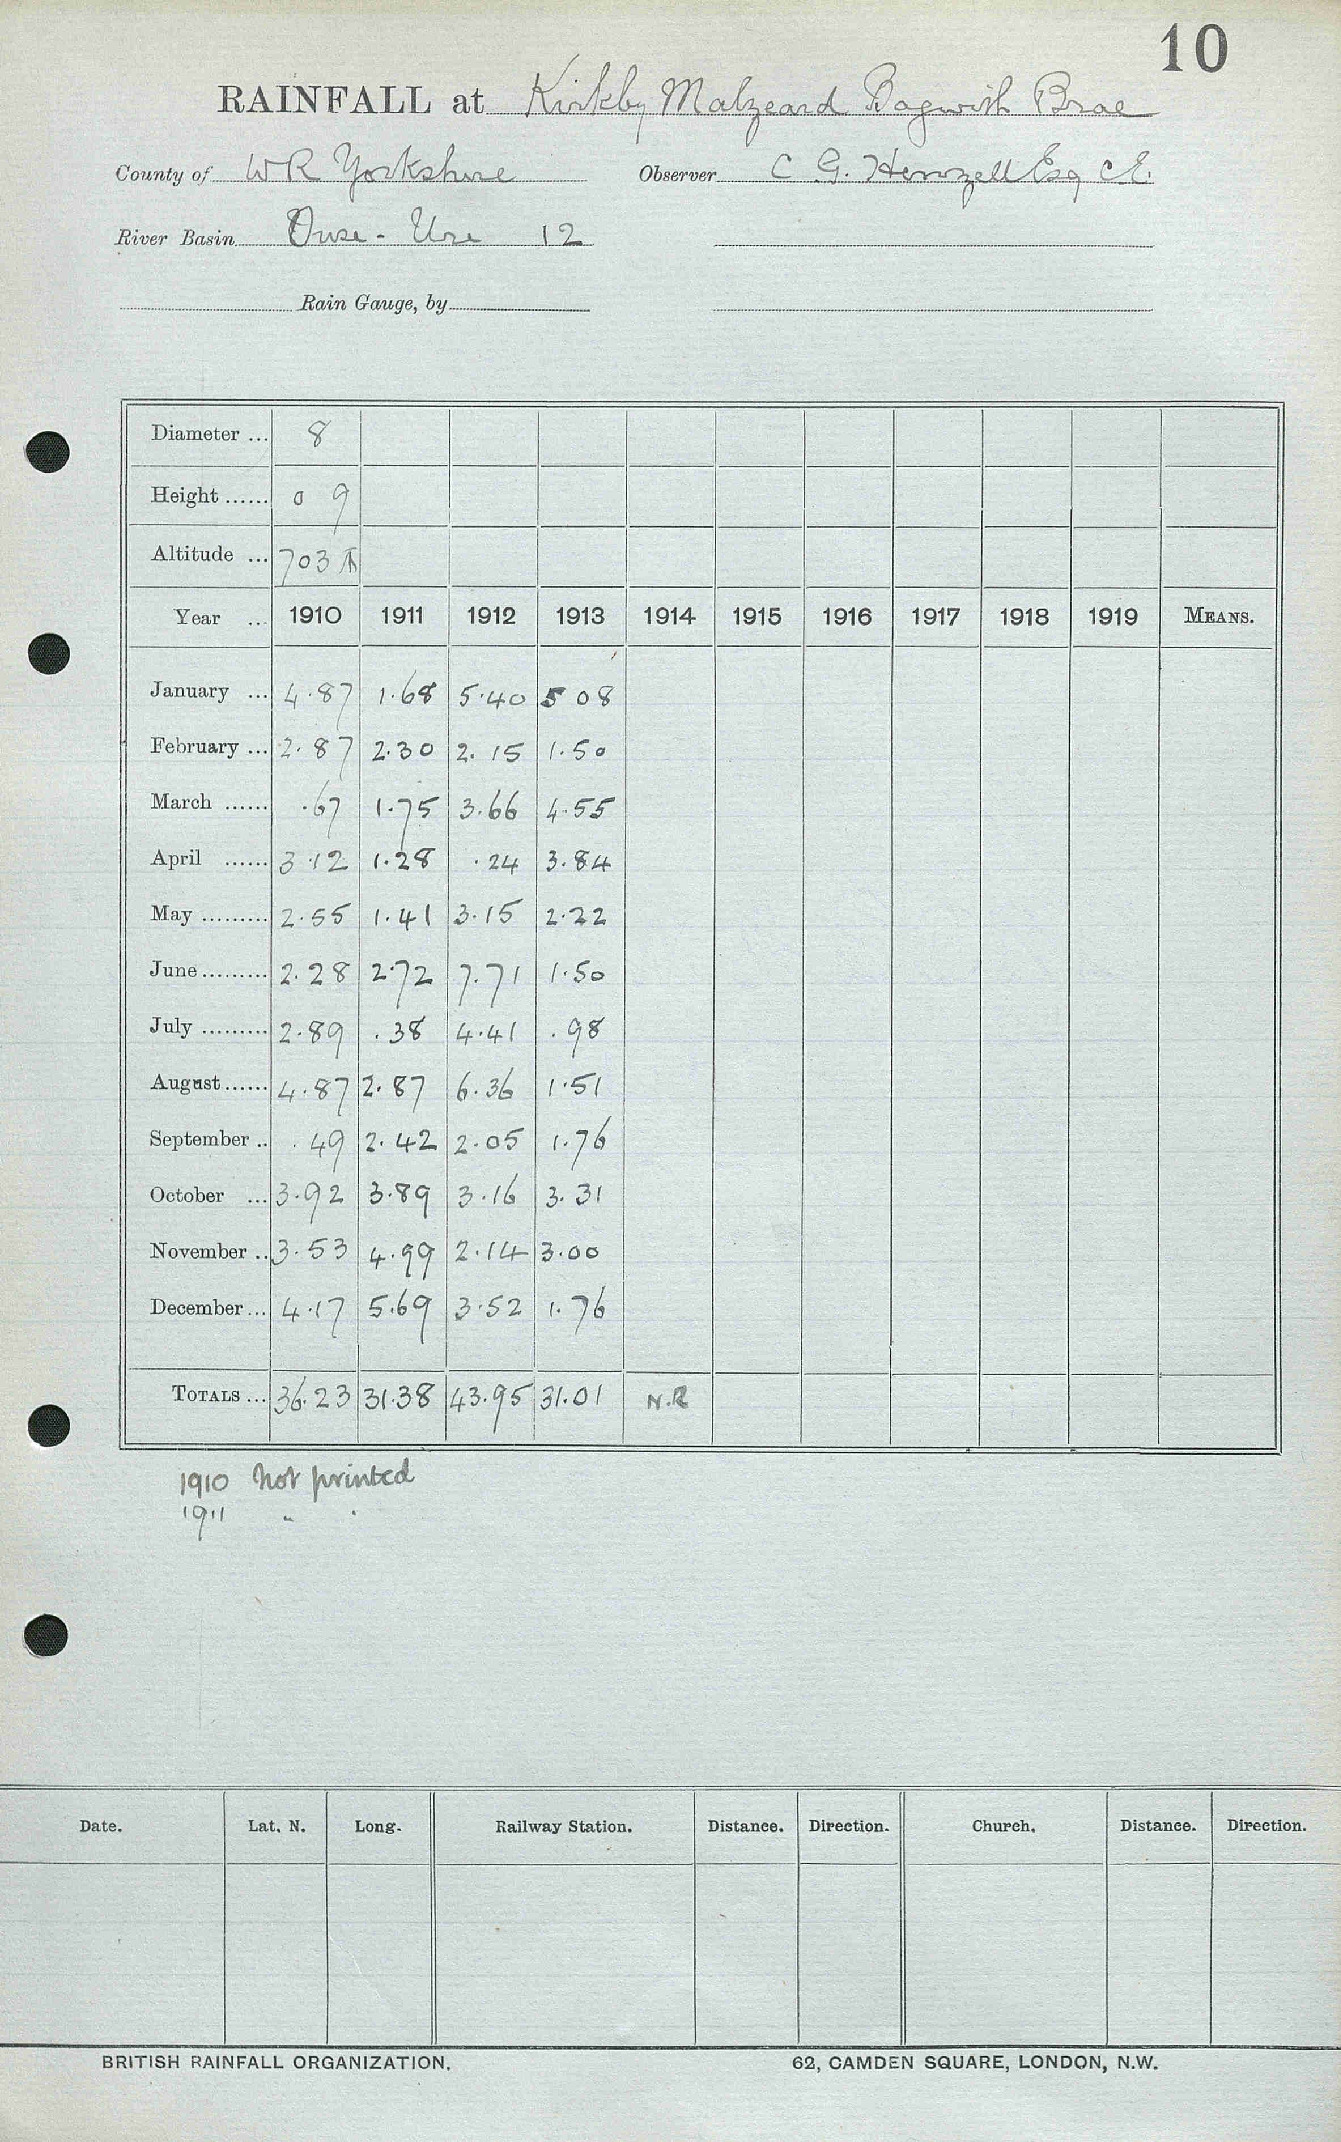 10
RAINFALL at Kirkby Malzeard Bagwith Brae
County of W R Yorkshire Observer C G. Henzell Esq C.E.
River Basin Ouse - Ure 12
Rain Gauge, by
Diameter ... 8
Height ...... 0 9
Altitude ... 703
Year ... 1910 1911 1912 1913 1914 1915 1916 1917 1918 1919 MEANS.
January ... 4.87 1.68 5.40 5 08
February ... 2.87 2.30 2.15 1.50
March ...... .67 1.75 3.66 4.55
April ...... 3.12 1.28 .24 3.84
May ......... 2.55 1.41 3.15 2.22
June ......... 2.28 2.72 7.71 1.50
July ......... 2.89 .38 4.41 .98
August ...... 4.87 2.87 6.36 1.51
September .. .49 2.42 2.05 1.76
October ... 3.92 3.89 3.16 3.31
November .. 3.53 4.99 2.14 3.00
December ... 4.17 5.69 3.52 1.76
TOTALS ... 36.23 31.38 43.95 31.01 N.R
1910 Not printed
1911 " "
Date. Lat. N. Long. Railway Station. Distance. Direction. Church. Distance. Direction.
BRITISH RAINFALL ORGANIZATION. 62, CAMDEN SQUARE, LONDON, N.W.